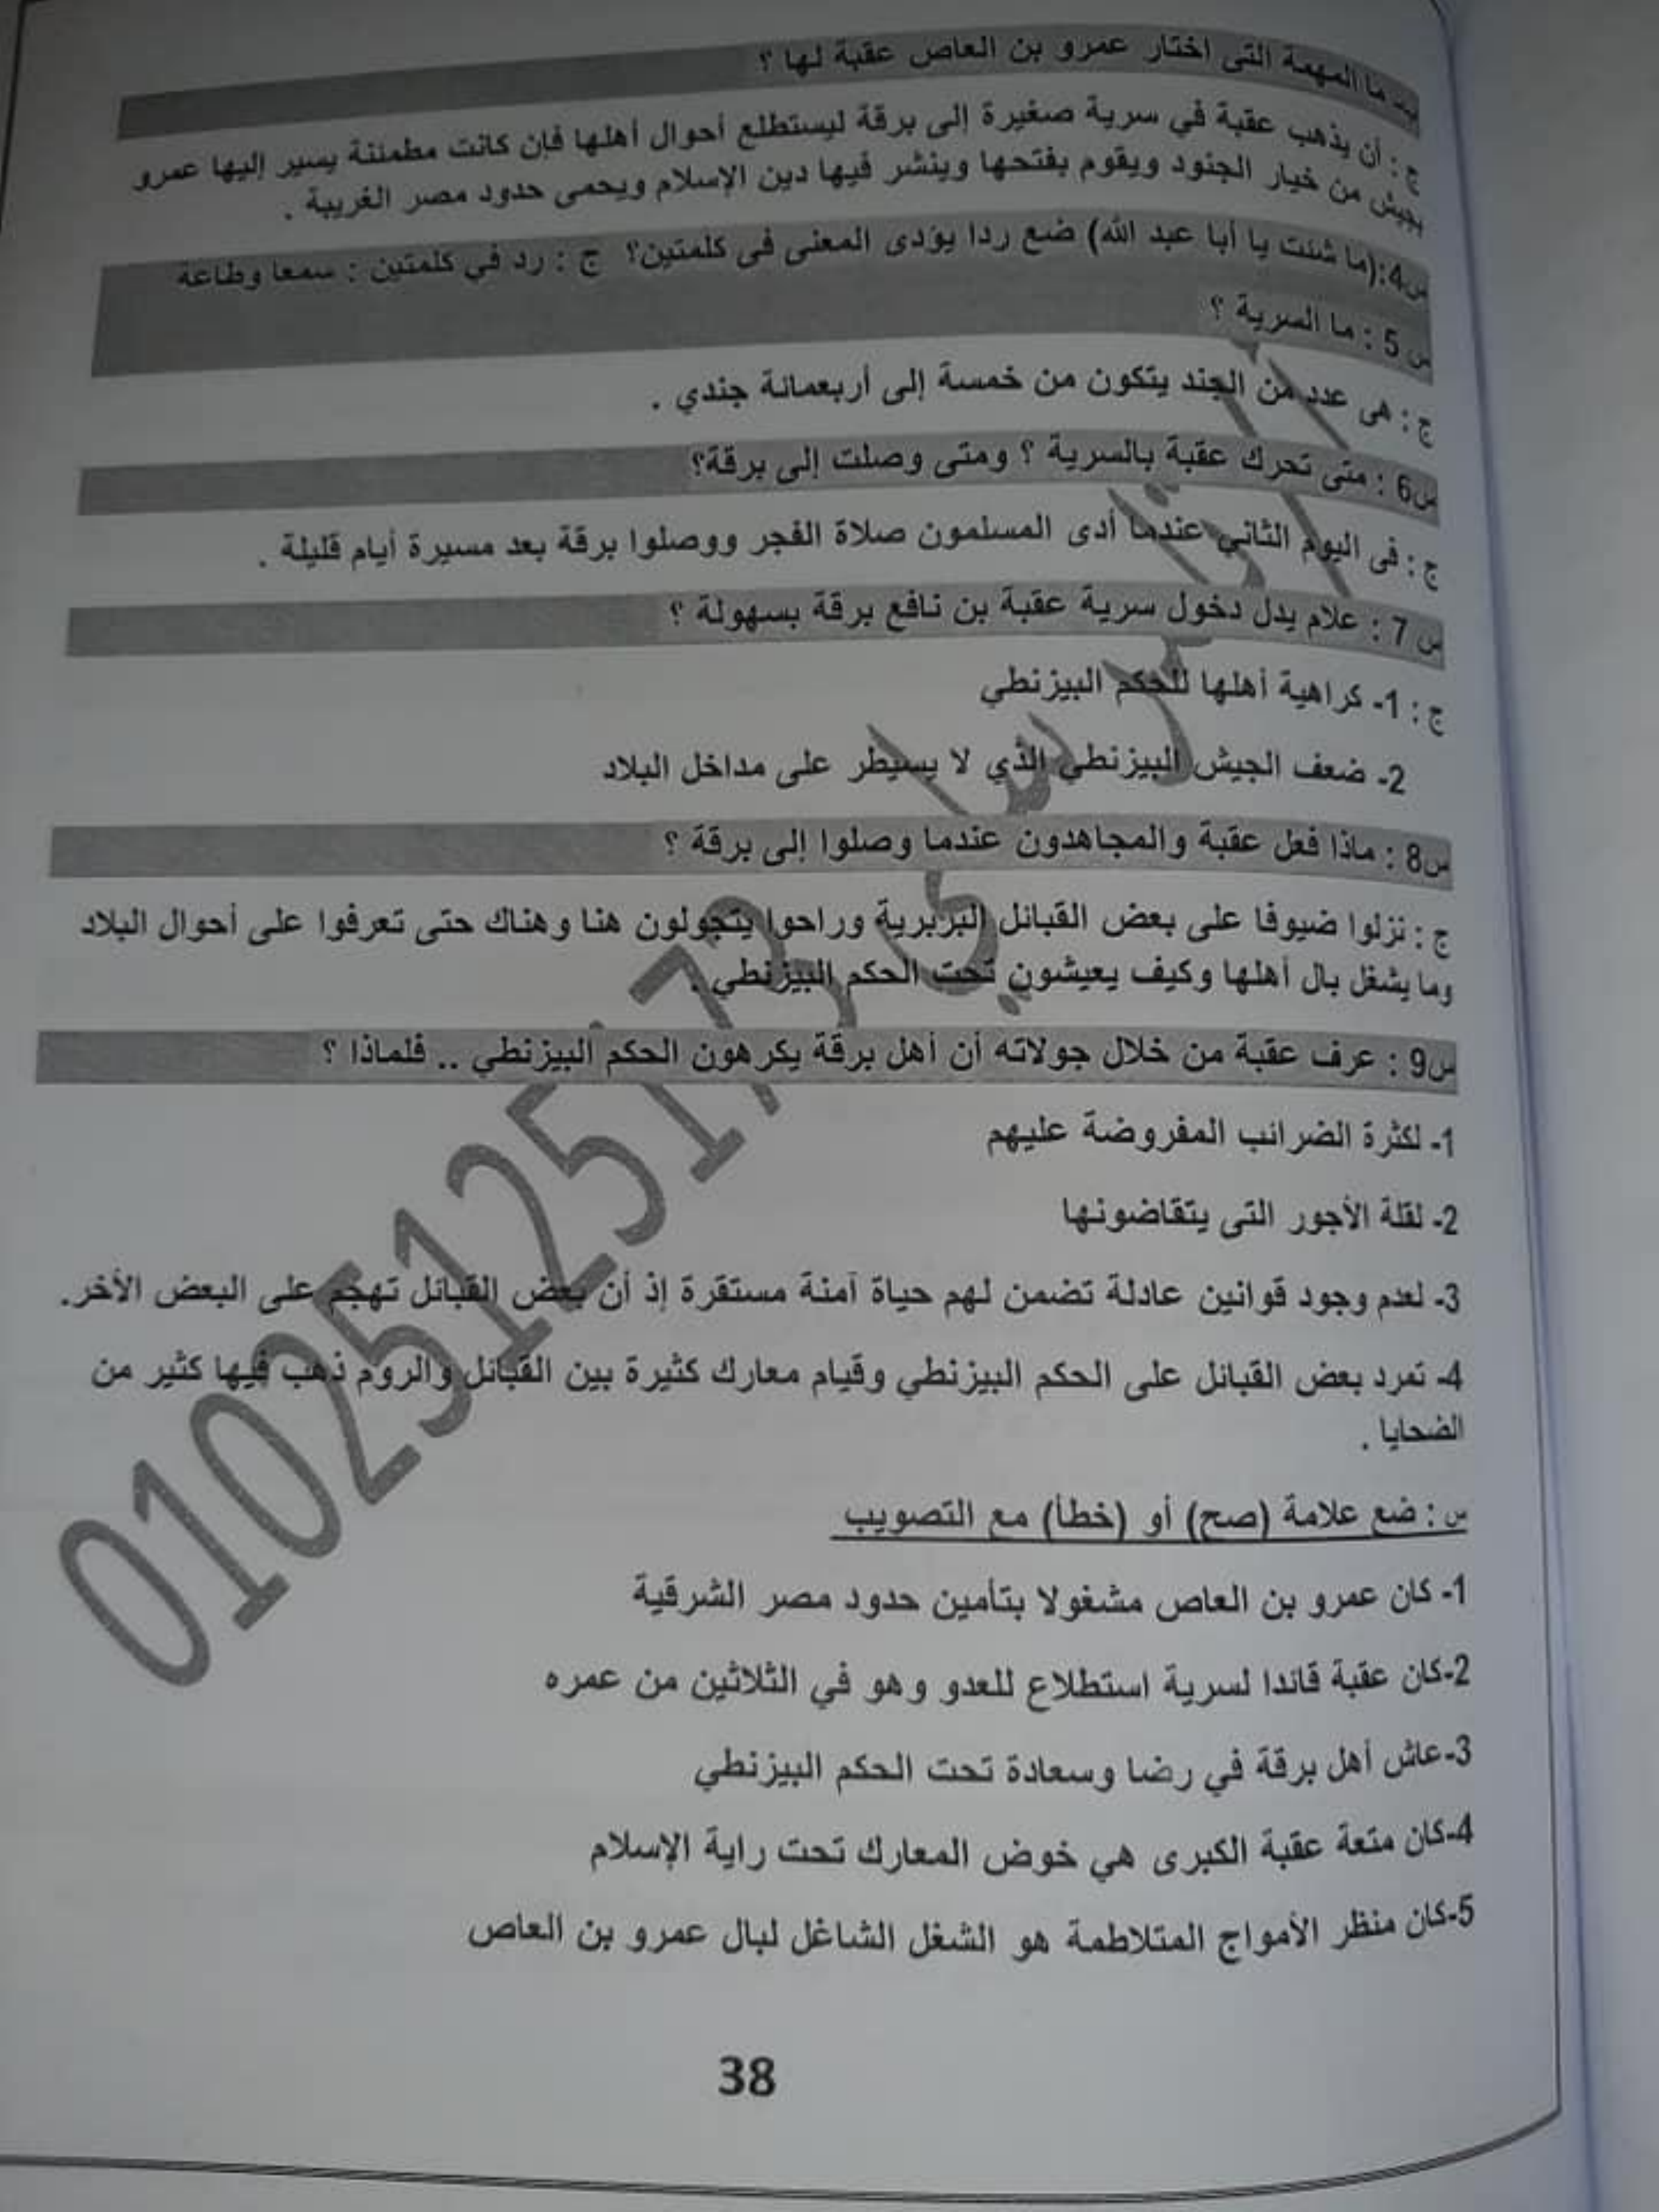 ما المهمة التى اختار عمرو بن العاص عقبة لها ؟
ج : أن يذهب عقبة في سرية صغيرة إلى برقة ليستطلع أحوال أهلها فإن كانت مطمئنة يسير إليها عمرو
بجيش من خيار الجنود ويقوم بفتحها وينشر فيها دين الإسلام ويحمى حدود مصر الغربية .
س4:(ما شئت يا أبا عبد الله) ضع ردا يؤدى المعنى فى كلمتين؟ ج : رد في كلمتين : سمعا وطاعة
س 5 : ما السرية ؟
ج : هى عدد من الجند يتكون من خمسة إلى أربعمائة جندي .
س6 : متى تحرك عقبة بالسرية ؟ ومتى وصلت إلى برقة؟
ج : فى اليوم الثاني عندما أدى المسلمون صلاة الفجر ووصلوا برقة بعد مسيرة أيام قليلة .
س 7 : علام يدل دخول سرية عقبة بن نافع برقة بسهولة ؟
ج : 1- كراهية أهلها للحكم البيزنطي
2- ضعف الجيش البيزنطي الذي لا يسيطر على مداخل البلاد
س8 : ماذا فعل عقبة والمجاهدون عندما وصلوا إلى برقة ؟
ج : نزلوا ضيوفا على بعض القبائل البربرية وراحوا يتجولون هنا وهناك حتى تعرفوا على أحوال البلاد
وما يشغل بال أهلها وكيف يعيشون تحت الحكم البيزنطي .
س9 : عرف عقبة من خلال جولاته أن أهل برقة يكرهون الحكم البيزنطي .. فلماذا ؟
1- لكثرة الضرائب المفروضة عليهم
2- لقلة الأجور التى يتقاضونها
3- لعدم وجود قوانين عادلة تضمن لهم حياة آمنة مستقرة إذ أن بعض القبائل تهجم على البعض الأخر.
4- تمرد بعض القبائل على الحكم البيزنطي وقيام معارك كثيرة بين القبائل والروم ذهب فيها كثير من
الضحايا .
س : ضع علامة (صح) أو (خطأ) مع التصويب
1- كان عمرو بن العاص مشغولا بتأمين حدود مصر الشرقية
2-كان عقبة قائدا لسرية استطلاع للعدو وهو في الثلاثين من عمره
3-عاش أهل برقة في رضا وسعادة تحت الحكم البيزنطي
4-كان متعة عقبة الكبرى هي خوض المعارك تحت راية الإسلام
5-كان منظر الأمواج المتلاطمة هو الشغل الشاغل لبال عمرو بن العاص
38